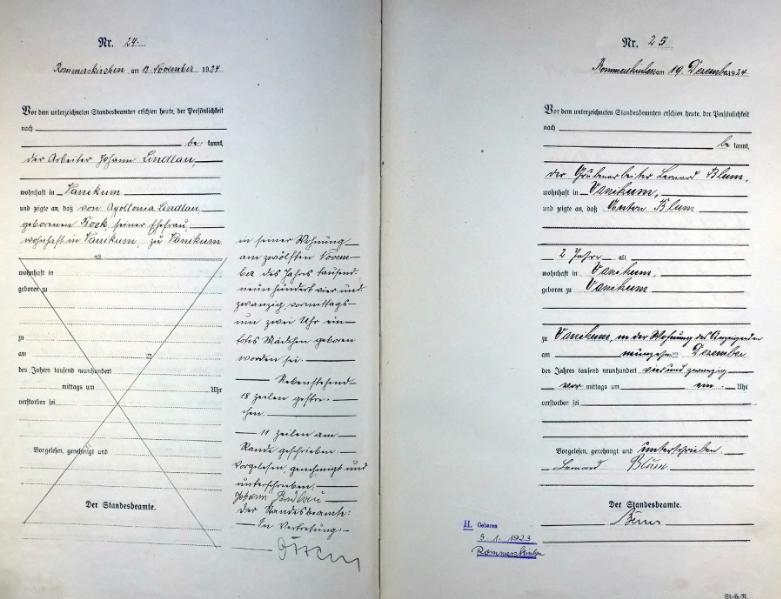 Nr. 24.
Rommerskirchen, am 13. November 1924
Vor dem unterzeichneten Standesbeamten erschien heute, der Persönlichkeit
nach
be kannt,
der Arbeiter Johann Lindlau,
wohnhaft in Vanikum
und zeigte an, daß von Apollonia Lindlau,
geborenen Bock, seiner Ehefrau,
wohnhaft in Vanikum, zu Vanikum
alt
wohnhaft in
geboren zu
zu
am
des Jahres tausend neunhundert
mittags um Uhr
verstorben sei
Vorgelesen, genehmigt und
Der Standesbeamte.
in seiner Wohnung
am zwölften Novem-
ber des Jahres tausend
neunhundert vier und
zwanzig vormittags
um zwei Uhr ein
totes Mädchen geboren
worden sei.
Nebenstehend
18 Zeilen gestri-
chen.
11 Zeilen am
Rande geschrieben
Vorgelesen, genehmigt und
unterschrieben.
Johann Lindlau
Der Standesbeamte:
In Vertretung:
Nr. 25
Rommerskirchen am 19. Dezember 1924
Vor dem unterzeichneten Standesbeamten erschien heute, der Persönlichkeit
nach
be kannt,
der Grubenarbeiter Leonard Blum,
wohnhaft in Vanikum,
und zeigte an, daß Anton Blum
2 Jahre alt
wohnhaft in Vanikum,
geboren zu Vanikum
zu Vanikum, in der Wohnung des Anzeigenden
am neunzehn Dezember
des Jahres tausend neunhundert vier und zwanzig
vor mittags um ein Uhr
verstorben sei
Vorgelesen, genehmigt und unterschrieben
Leonard Blum
Der Standesbeamte.
II. Geboren
3. 1. 1923
Rommerskirchen